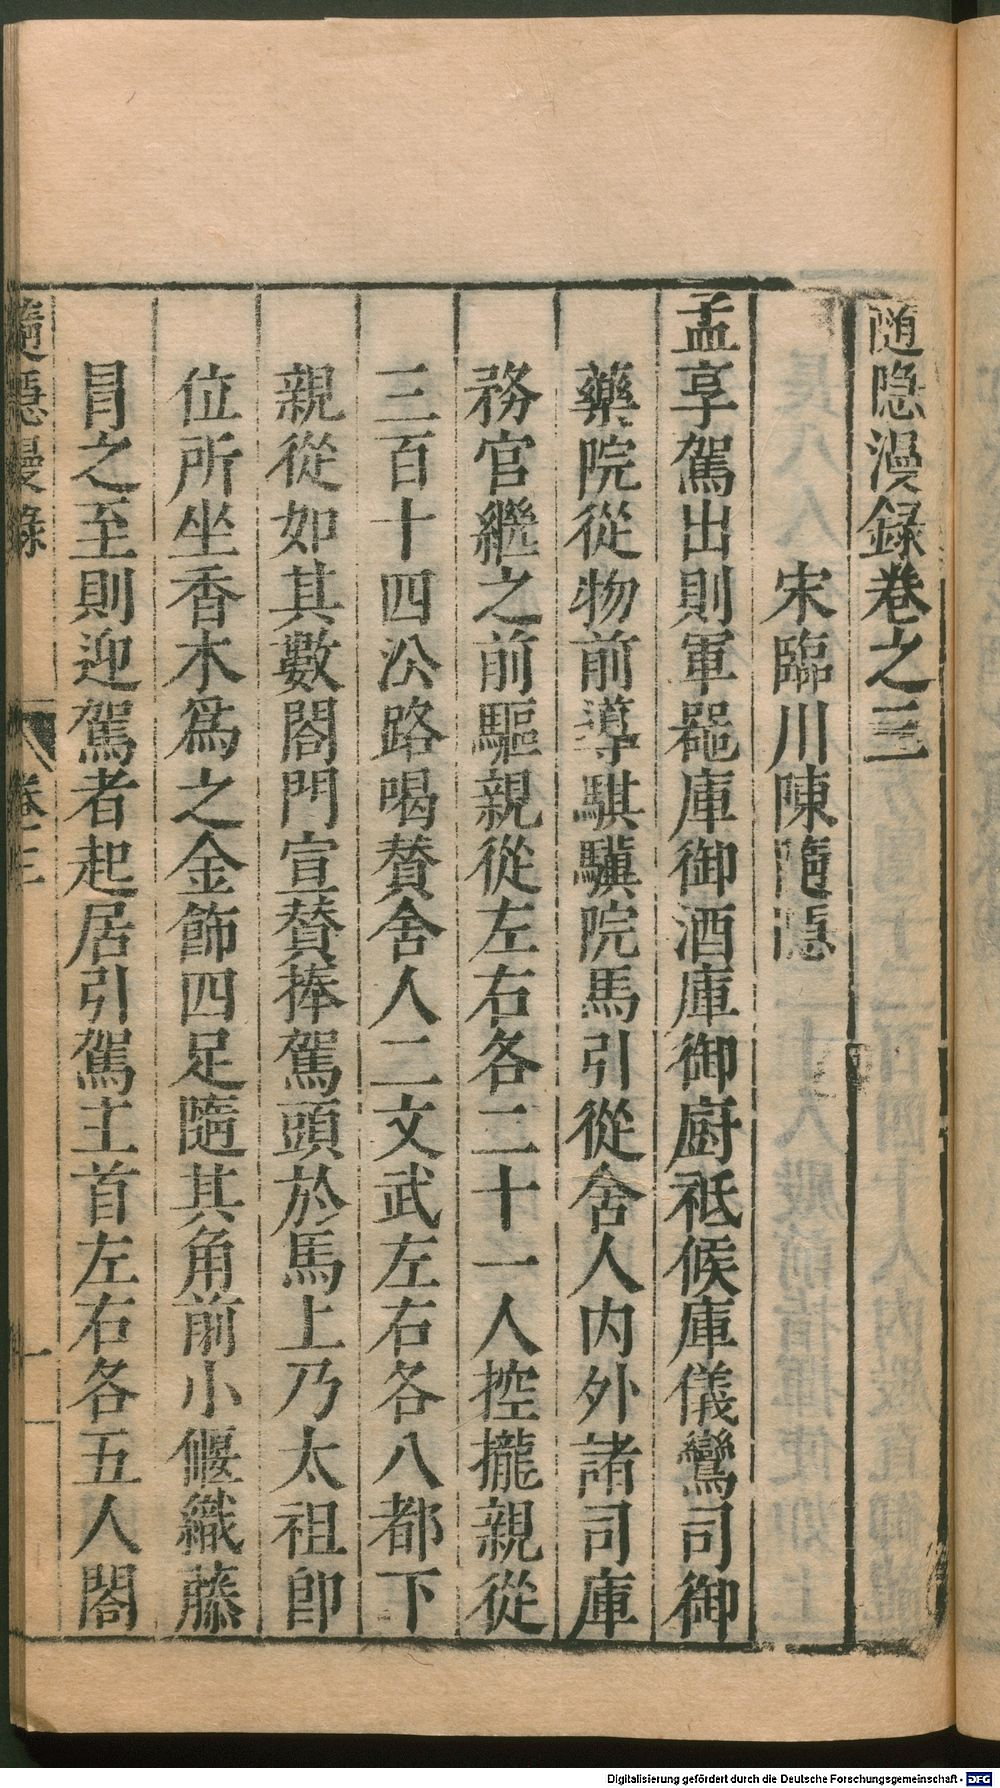 随隐漫録卷之三
宋臨川陳隨隱
孟享駕出則軍器庫御酒庫御厨祗候庫儀鸞司御
藥院從物前導騏驥院馬引從舍人内外諸司庫
務官繼之前驅親從左右各二十一人控攏親從
三百十四公路喝賛舍人二文武左右各八都下
親從如其數閤門宣賛捧駕頭於馬上乃太祖即
位所坐香木爲之金飾四足隨其角前小偃織藤
冐之至則迎駕者起居引駕主首左右各五人閤
隨隱漫錄
卷三
一
Digitalisierung gefördert durch die Deutsche Forschungsgemeinschaft - DFG